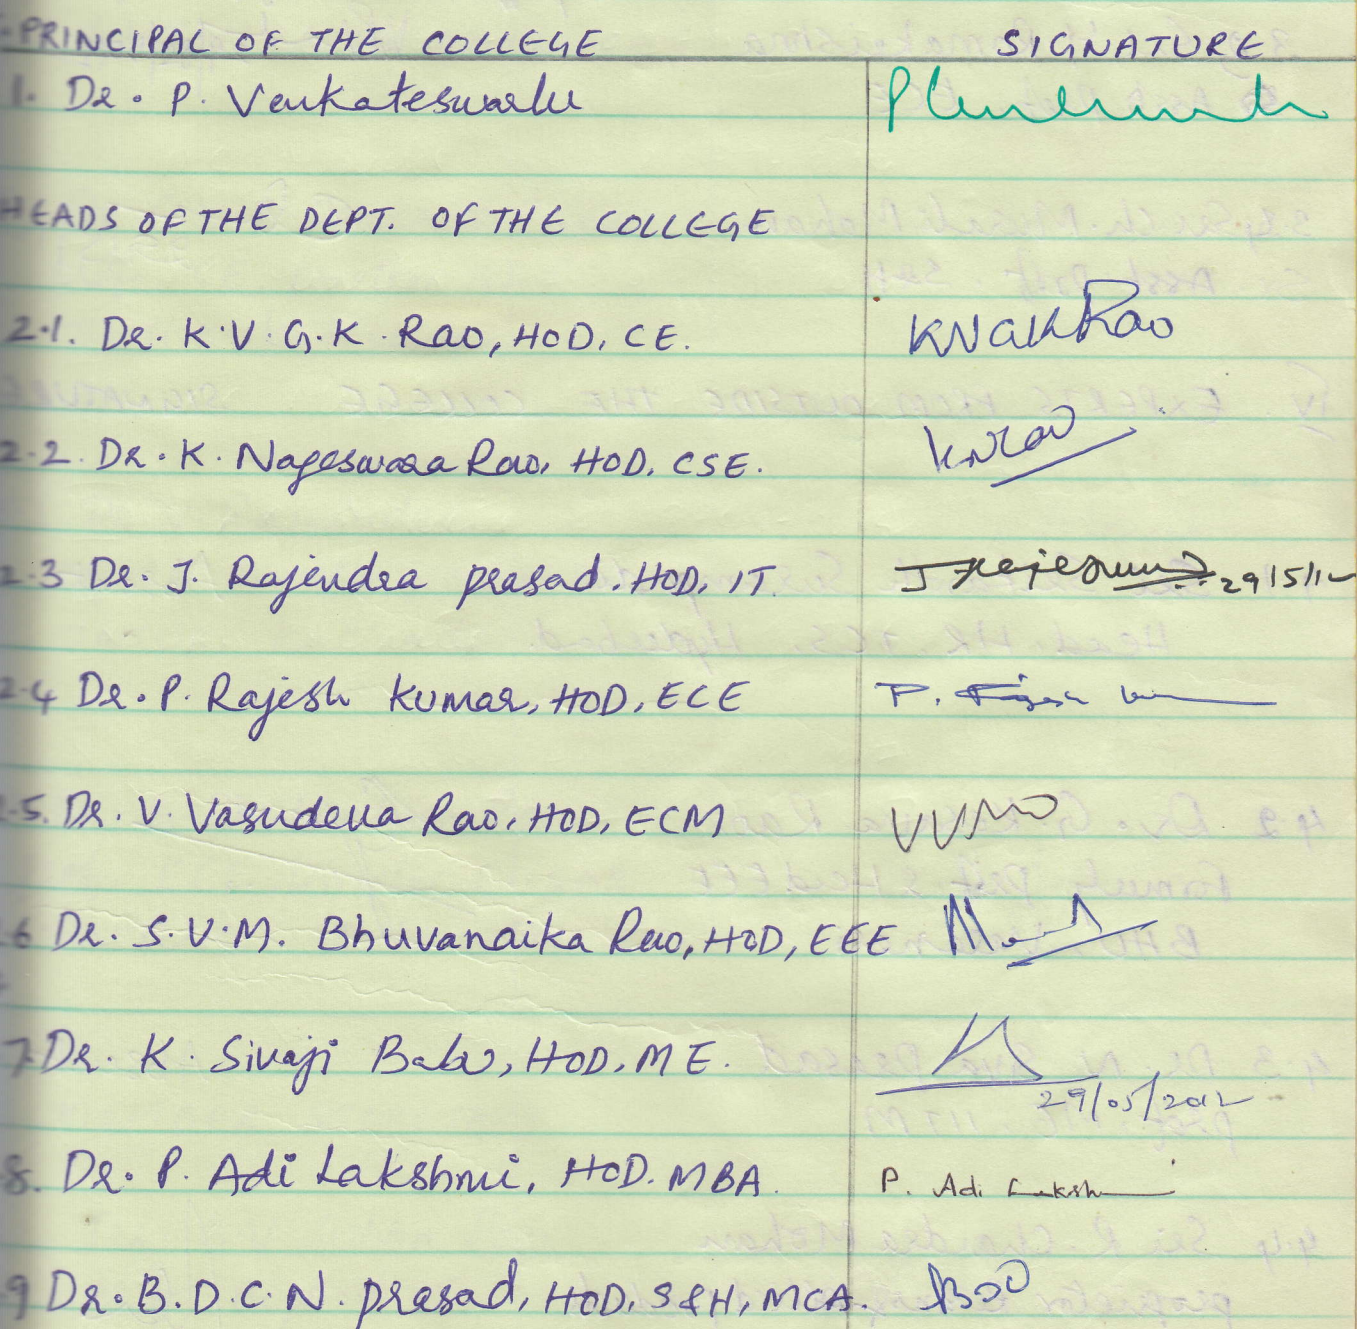 PRINCIPAL OF THE COLLEGE SIGNATURE
1. Dr. P. Venkateswarlu
HEADS OF THE DEPT. OF THE COLLEGE
2.1. Dr. K.V.G.K. Rao, HOD, CE. KVGKRao
2.2. Dr. K. Nageswara Rao, HOD, CSE. KNRao
2.3 Dr. J. Rajendra prasad. HOD, IT. 29/5/12
2.4 Dr. P. Rajesh Kumar, HOD, ECE P. Rajesh
.5. Dr. V. Vasudeva Rao, HOD, ECM
6 Dr. S.V.M. Bhuvanaika Rao, HOD, EEE
7 Dr. K. Sivaji Babu, HOD, ME. 29/05/2012
8. Dr. P. Adi Lakshmi, HOD. MBA. P. Adi Lakshmi
9 Dr. B.D.C.N. prasad, HOD, S&H, MCA.